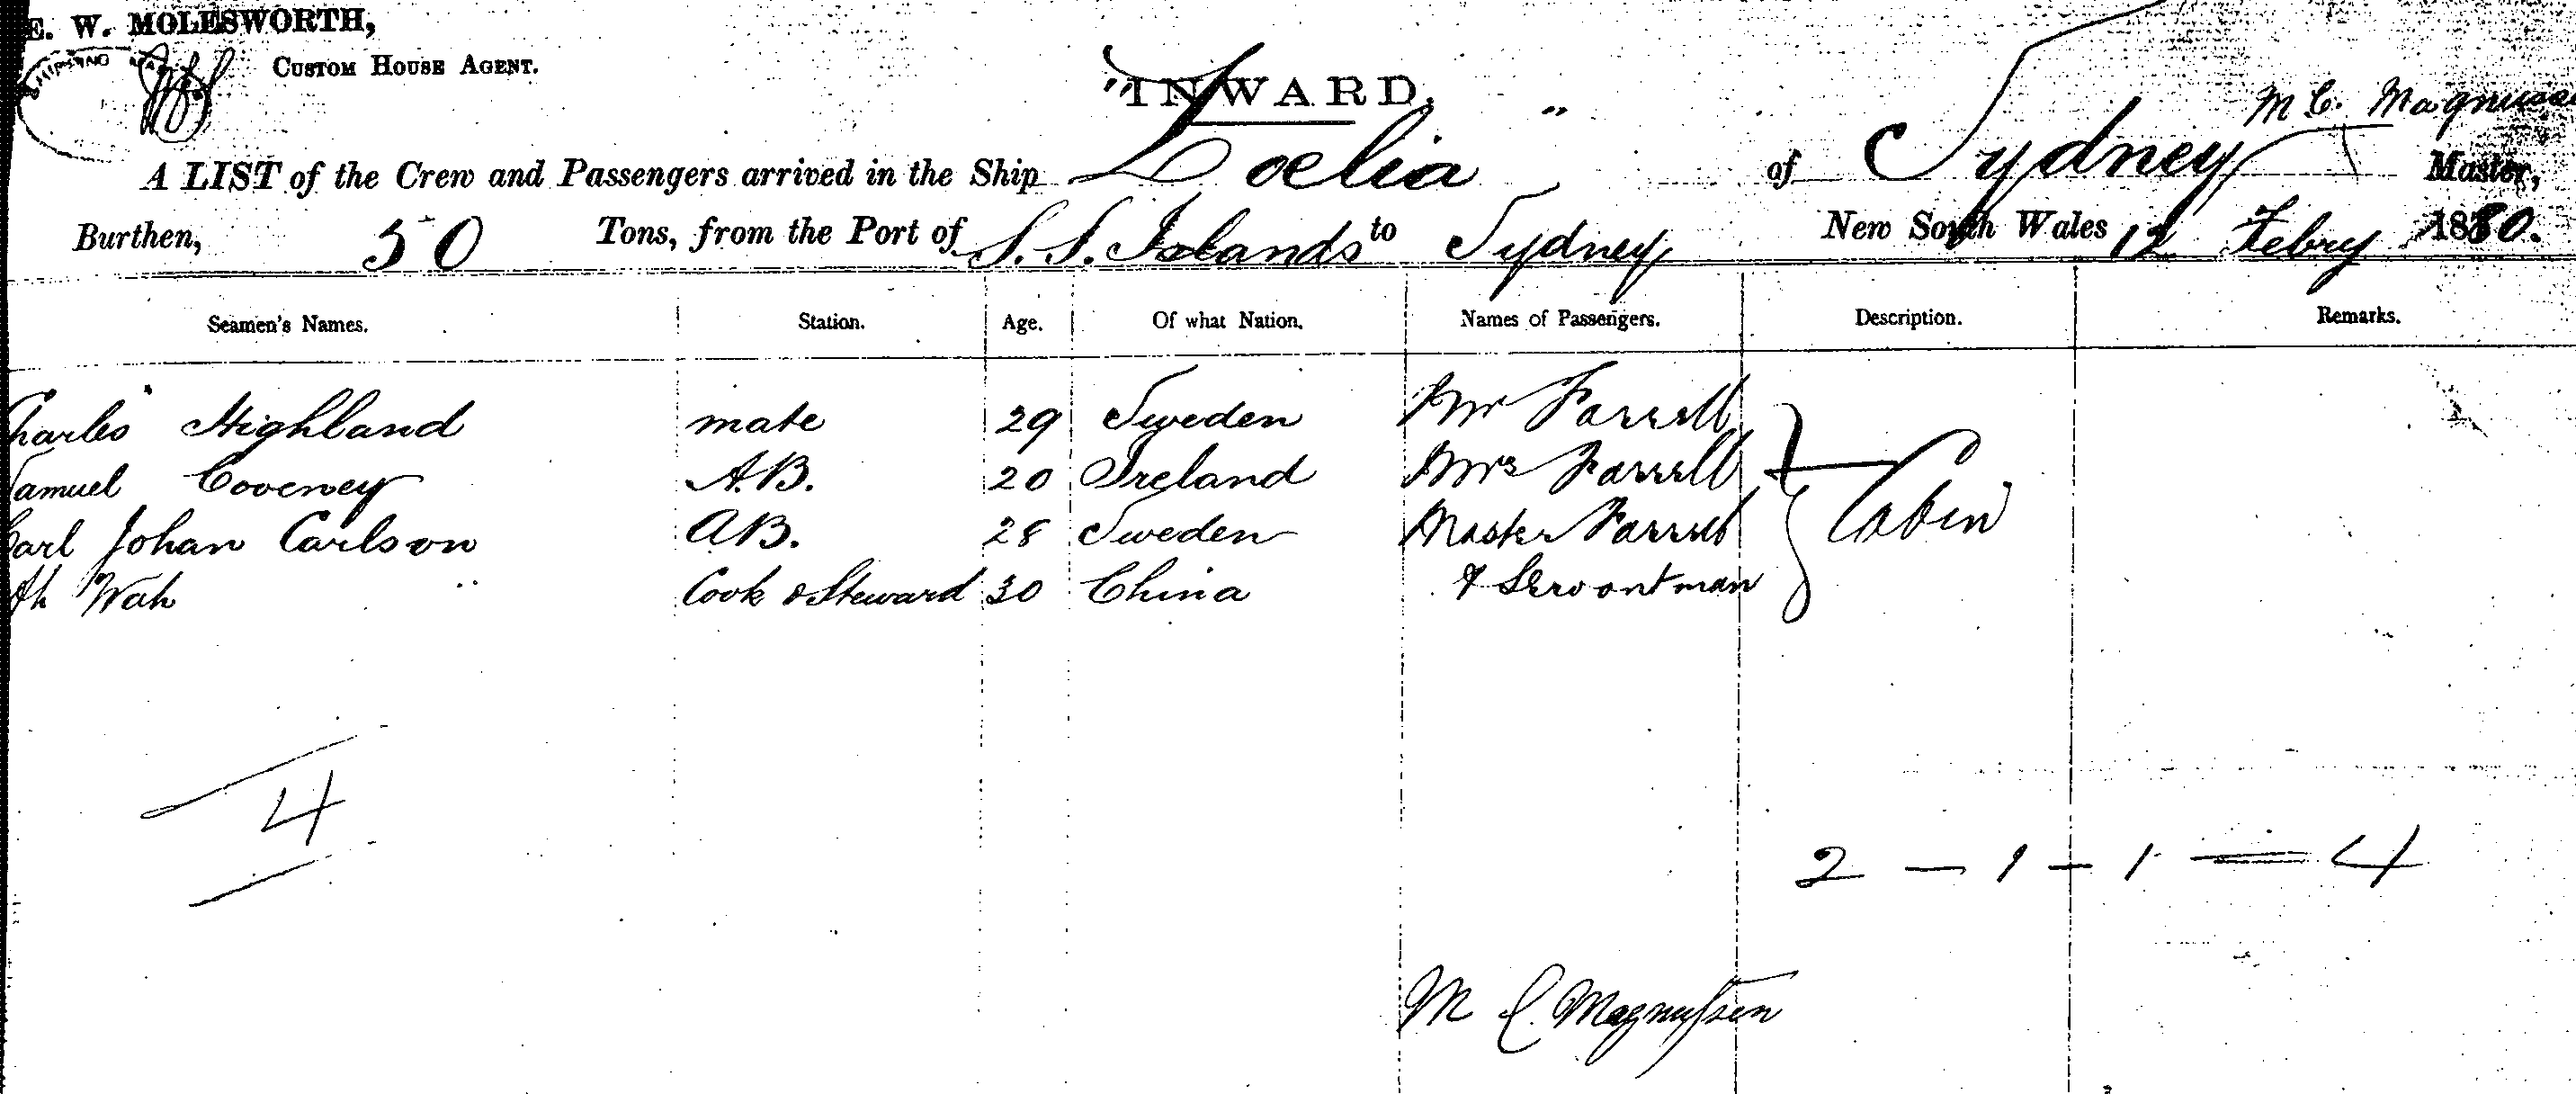 E. W. MOLESWORTH,
CUSTOM HOUSE AGENT.
INWARD,
M C. Magnussen
A LIST of the Crew and Passengers arrived in the Ship "Loelia" of Sydney Master,
Burthen, 50 Tons, from the Port of S. S. Islands to Sydney New South Wales 12 Febry 1880.
Seamen's Names. Station. Age. Of what Nation. Names of Passengers. Description. Remarks.
Charles Highland mate 29 Sweden Mr Farrell
Samuel Coveney A.B. 20 Ireland Mrs Farrell
Carl Johan Carlson AB. 28 Sweden Master Farrell Cabin
Ah Wah Cook & Steward 30 China & Servantman
4
2 - 1 - 1 = 4
M C. Magnussen